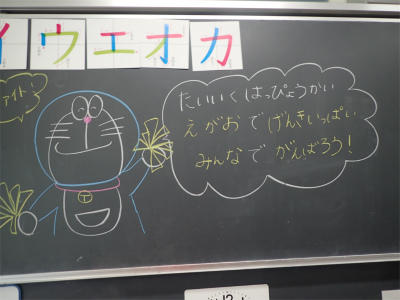 イウエオカ
ファイト!
たいいくはっぴょうかい
えがおでげんきいっぱい
みんなでがんばろう!